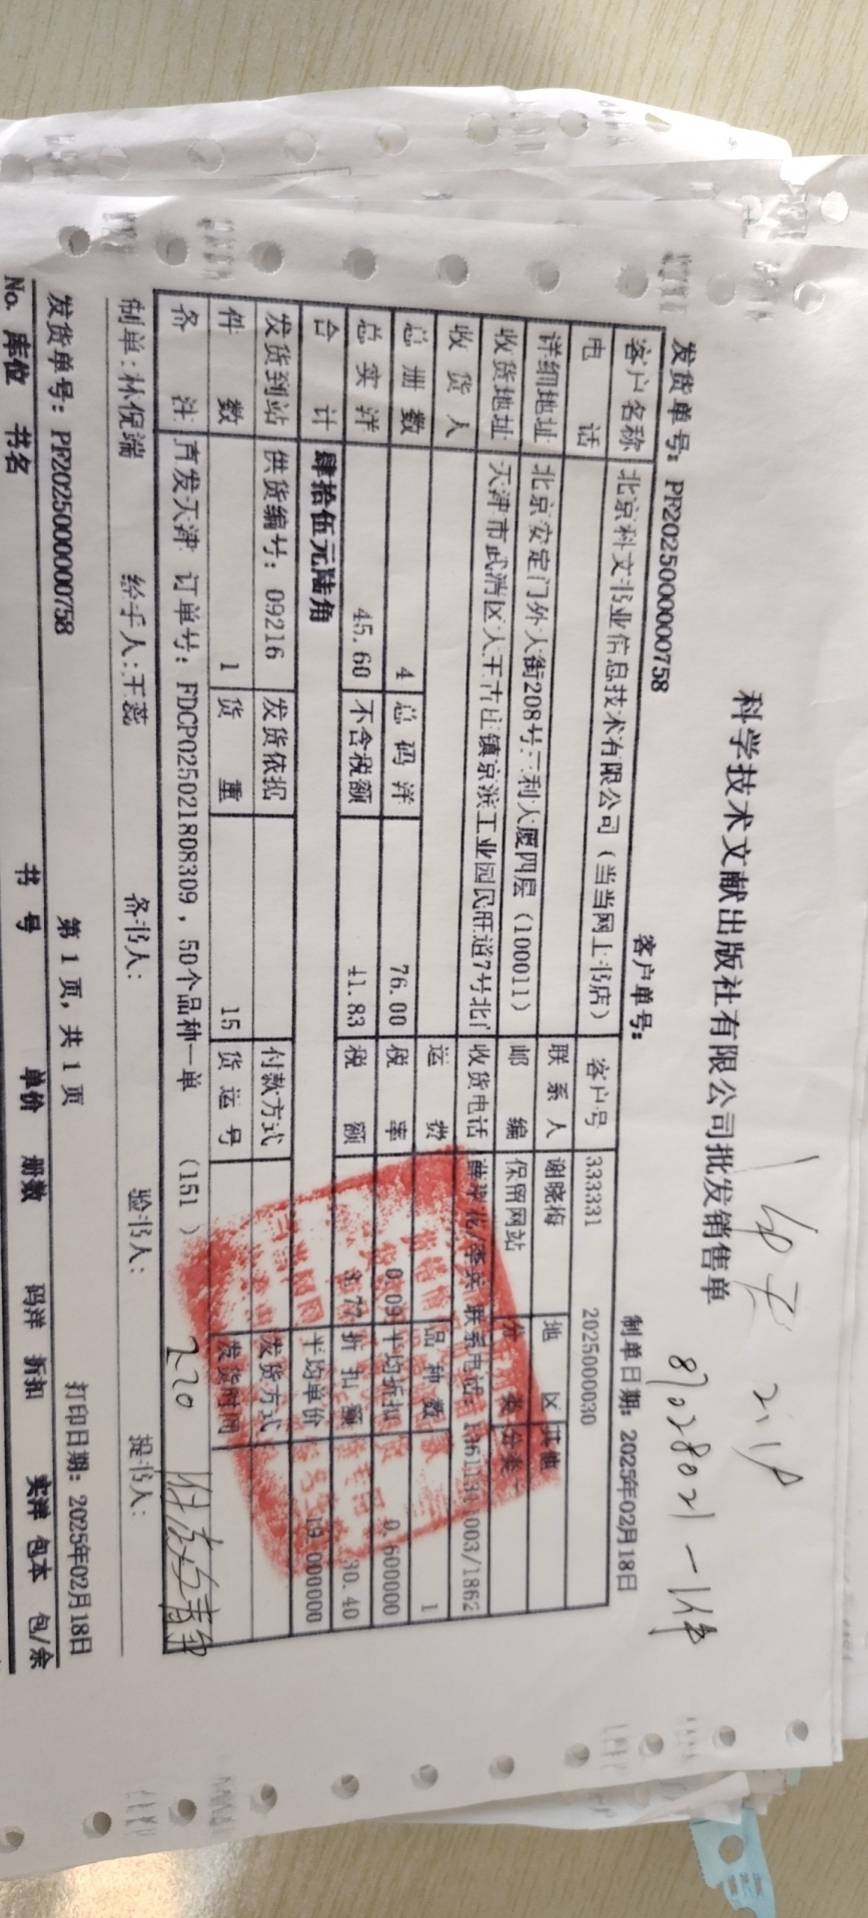 科学技术文献出版社有限公司批发销售单
发货单号: PF2025000000758 客户单号: 制单日期: 2025年02月18日
客户名称 北京科文书业信息技术有限公司（当当网上书店） 客户号 333331 2025000030
电 话 联系人 谢晓梅 地 区 其他
详细地址 北京安定门外大街208号三利大厦四层（100011） 邮 编 保留网站 分 类 分类一
收货地址 天津市武清区大王古庄镇京滨工业园民旺道7号北门 收货电话 联系电话: 003/1862
收 货 人 运 费 品 种 数 1
总 册 数 4 总 码 洋 76.00 税 率 0.09 平均折扣 0.600000
总 实 洋 45.60 不含税额 41.83 税 额 3.77 折 扣 额 30.40
合 计 肆拾伍元陆角 平均单价 19.000000
发货到站 供货编号: 09216 发货依据 付款方式 发货方式
件 数 1 货 重 15 货 运 号 发货时间
备 注 直发天津 订单号: FDCP025021808309，50个品种一单 （151 ） 220
制单:林倪端 经手人:王蕊 备书人: 验书人: 提书人:
第 1 页, 共 1 页 打印日期: 2025年02月18日
发货单号: PF2025000000758
No. 库位 书名 书 号 单价 册数 码洋 折扣 实洋 包本 包/余